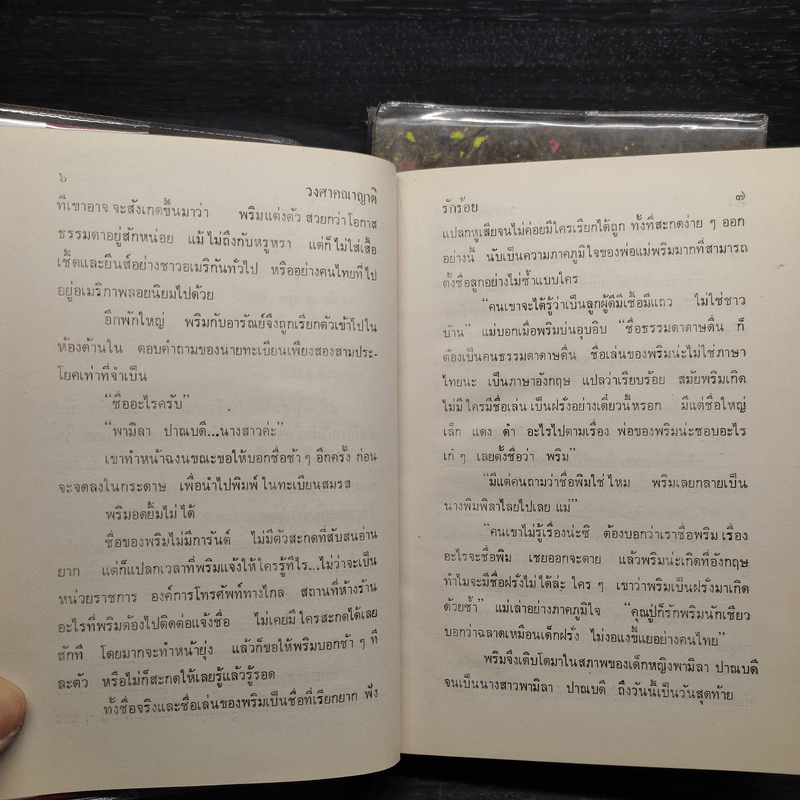 ๖
วงศาคณาญาติ
ที่เขาอาจ จะสังเกตขึ้นมาว่า พริมแต่งตัว สวยกว่าโอกาส
ธรรมดาอยู่สักหน่อย แม้ ไม่ถึงกับหรูหรา แต่ก็ ไม่ใส่เสื้อ
เชิ้ตและยีนส์อย่างชาวอเมริกันทั่วไป หรืออย่างคนไทยที่ไป
อยู่อเมริกาพลอยนิยมไปด้วย
อีกพักใหญ่ พริมกับอารัณย์จึงถูกเรียกตัวเข้าไปใน
ห้องด้านใน ตอบคำถามของนายทะเบียนเพียงสองสามประ-
โยคเท่าที่จำเป็น
“ชื่ออะไรครับ”
“พามิลา ปาณบดี...นางสาวค่ะ”
เขาทำหน้าฉงนขณะขอให้บอกชื่อช้า ๆ อีกครั้ง ก่อน
จะจดลงในกระดาษ เพื่อนำไปพิมพ์ ในทะเบียนสมรส
พริมอดยิ้มไม่ ได้
ชื่อของพริมไม่มีการันต์ ไม่มีตัวสะกดที่สับสนอ่าน
ยาก แต่ก็แปลกเวลาที่พริมแจ้งให้ใครรู้ทีไร...ไม่ว่าจะเป็น
หน่วยราชการ องค์การโทรศัพท์ทางไกล สถานที่ห้างร้าน
อะไรที่พริมต้องไปติดต่อแจ้งชื่อ ไม่เคยมี ใครสะกดได้เลย
สักที โดยมากจะทำหน้ายุ่ง แล้วก็ขอให้พริมบอกช้า ๆ ที
ละตัว หรือไม่ก็สะกดให้เลยรู้แล้วรู้รอด
ทั้งชื่อจริงและชื่อเล่นของพริมเป็นชื่อที่เรียกยาก ฟัง
รักร้อย
๗
แปลกหูเสียจนไม่ค่อยมีใครเรียกได้ถูก ทั้งที่สะกดง่าย ๆ ออก
อย่างนี้ นับเป็นความภาคภูมิใจของพ่อแม่พริมมากที่สามารถ
ตั้งชื่อลูกอย่างไม่ซ้ำแบบใคร
“คนเขาจะได้รู้ว่าเป็นลูกผู้ดีมีเชื้อมีแถว ไม่ใช่ชาว
บ้าน” แม่บอกเมื่อพริมบ่นอุบอิบ “ชื่อธรรมดาดาษดื่น ก็
ต้องเป็นคนธรรมดาดาษดื่น ชื่อเล่นของพริมน่ะไม่ใช่ภาษา
ไทยนะ เป็นภาษาอังกฤษ แปลว่าเรียบร้อย สมัยพริมเกิด
ไม่มี ใครมีชื่อเล่น เป็นฝรั่งอย่างเดี๋ยวนี้หรอก มีแต่ชื่อใหญ่
เล็ก แดง ดำ อะไรไปตามเรื่อง พ่อของพริมน่ะชอบอะไร
เก๋ ๆ เลยตั้งชื่อว่า พริม”
“มีแต่คนถามว่าชื่อพิมใช่ ไหม พริมเลยกลายเป็น
นางพิมพิลาไลยไปเลย แม่”
“คนเขาไม่รู้เรื่องน่ะซิ ต้องบอกว่าเราชื่อพริม เรื่อง
อะไรจะชื่อพิม เชยออกจะตาย แล้วพริมน่ะเกิดที่อังกฤษ
ทำไมจะมีชื่อฝรั่งไม่ได้ล่ะ ใคร ๆ เขาว่าพริมเป็นฝรั่งมาเกิด
ด้วยซ้ำ” แม่เล่าอย่างภาคภูมิใจ “คุณปู่ก็รักพริมนักเชียว
บอกว่าฉลาดเหมือนเด็กฝรั่ง ไม่งอแงขี้แยอย่างคนไทย”
พริมจึงเติบโตมาในสภาพของเด็กหญิงพามิลา ปาณบดี
จนเป็นนางสาวพามิลา ปาณบดี ถึงวันนี้เป็นวันสุดท้าย